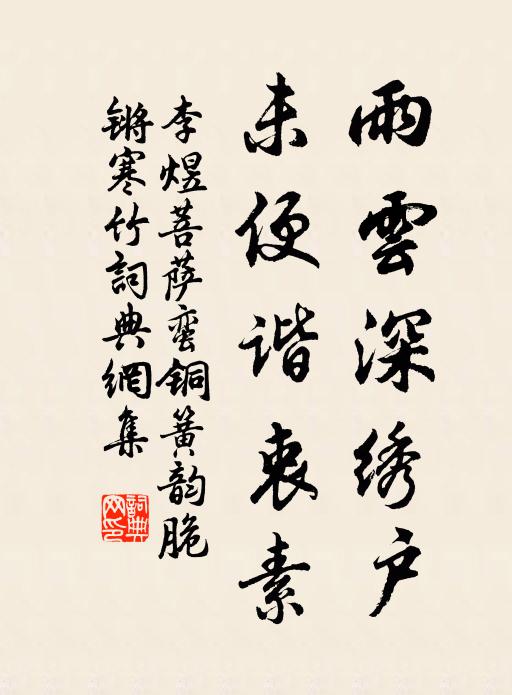 雨雲深绣户
未便谐衷素
李煜菩萨蛮銅簧韵脆
锵寒竹詞典網集
詞典
网印